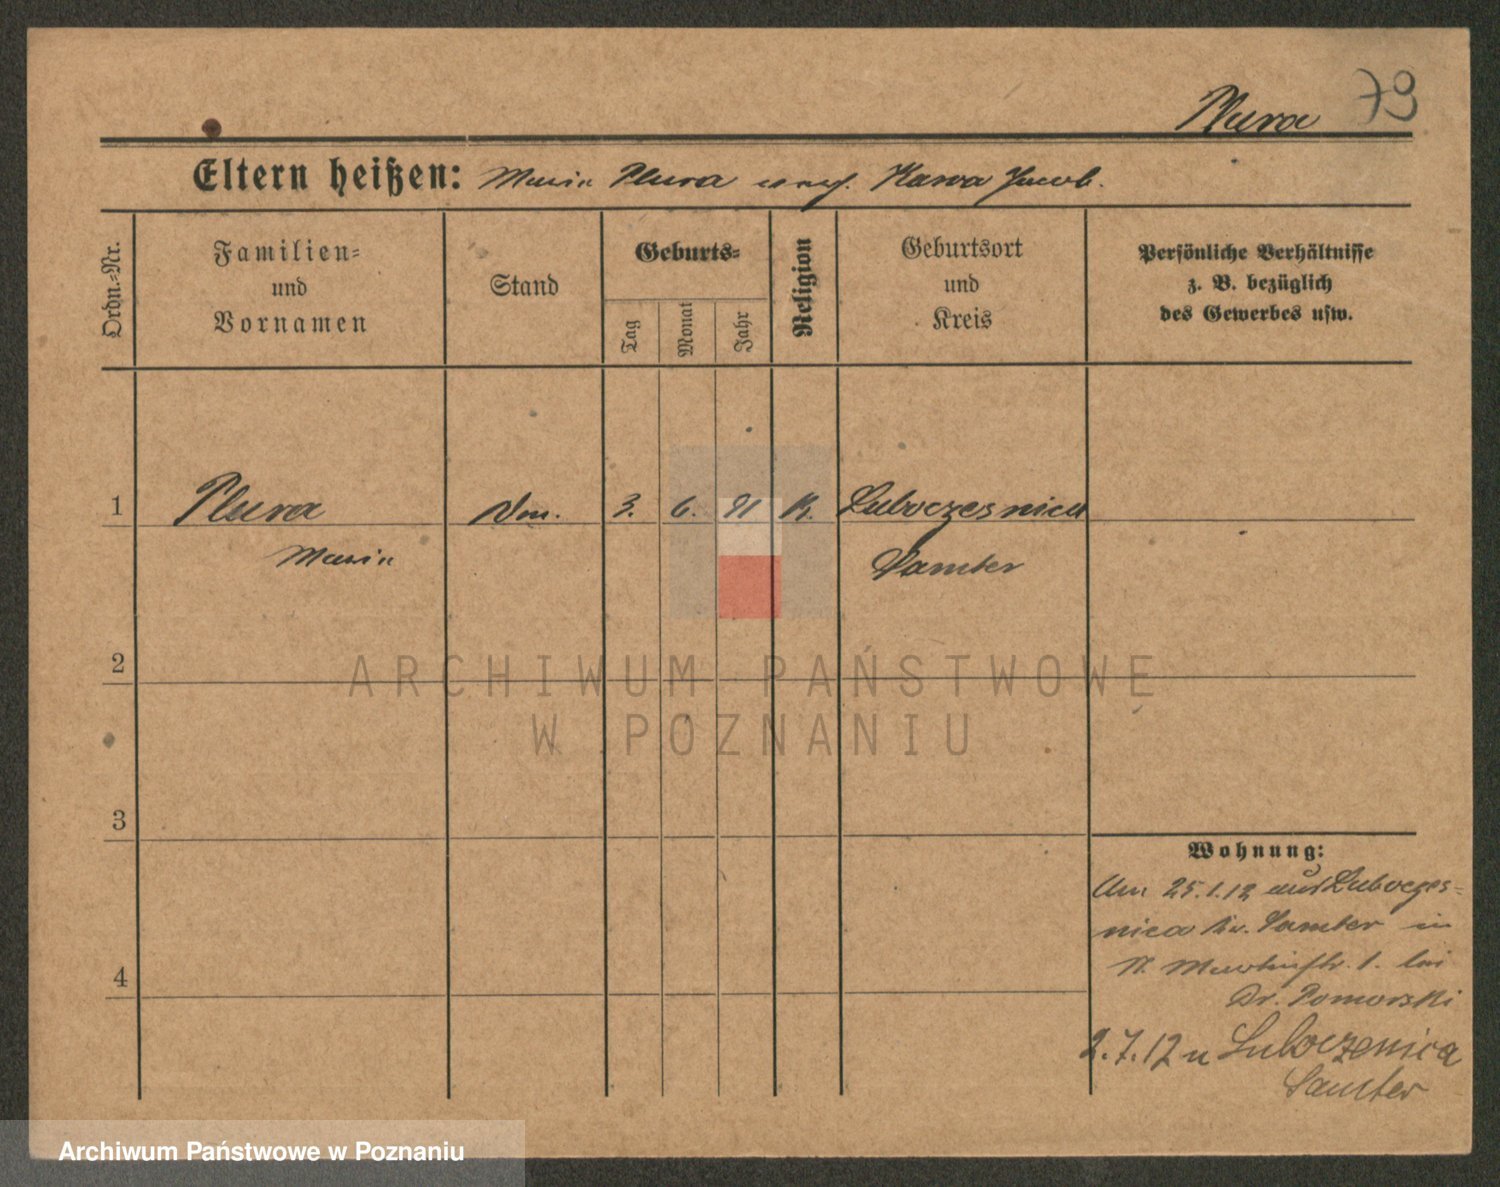 Plura 79
Eltern heißen: Maria Plura Kawa Jacob.
Ordn.=Nr.
Familien=
und
Vornamen
Stand
Geburts=
Tag
Monat
Jahr
Religion
Geburtsort
und
Kreis
Persönliche Verhältnisse
z. B. bezüglich
des Gewerbes usw.
1 Plura Dm. 3. 6. 91 K. Luboczesnica
Maria Samter
2
3
4
Wohnung:
Am 25.1.12 aus Luboczes=
nica Kr. Samter in
St. Martinstr. 1. bei
Dr. Pomorski
2.7.12 n Luboczenica
Samter
ARCHIWUM PAŃSTWOWE
W POZNANIU
Archiwum Państwowe w Poznaniu